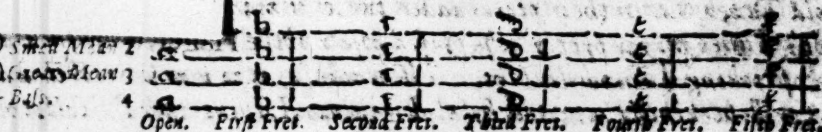 b r d e f
Small Mean 2 a b r d e f
Great Mean 3 a b r d e f
Bass. 4 a b r d e f
Open. First Fret. Second Fret. Third Fret. Fourth Fret. Fifth Fret.